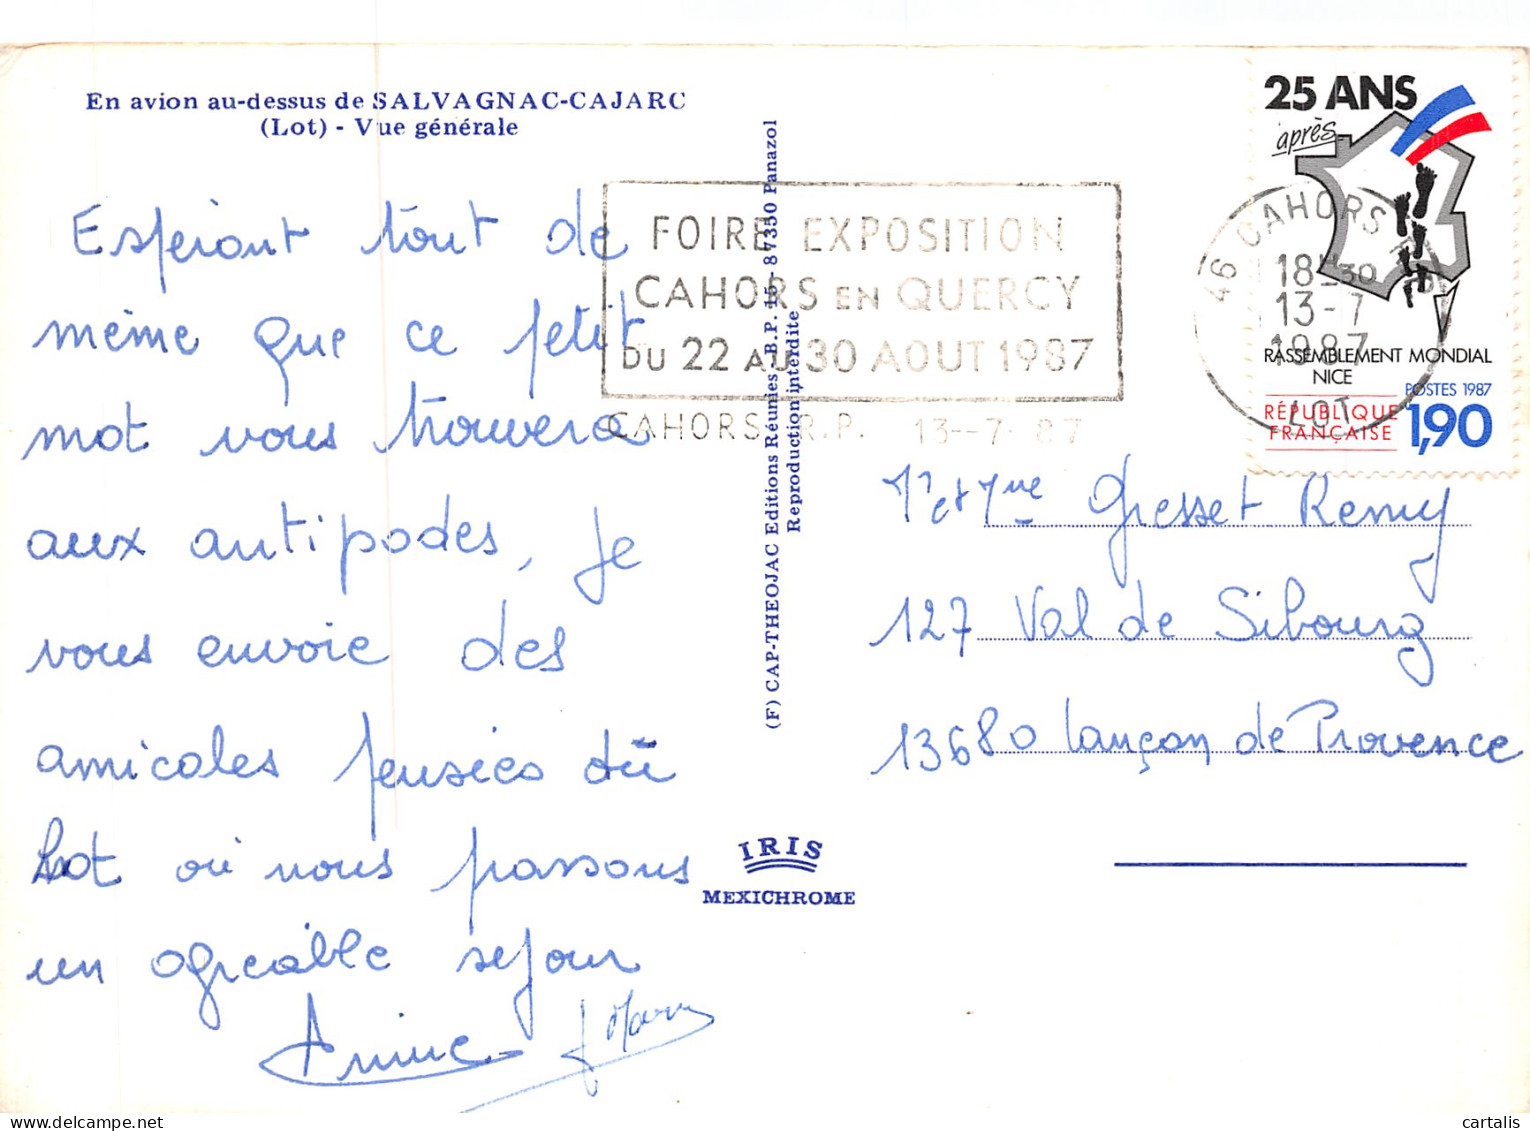 En avion au-dessus de SALVAGNAC-CAJARC
(Lot) - Vue générale
Espérant tout de
même que ce petit
mot vous trouvera
aux antipodes, je
vous envoie des
amicales pensées du
Lot où nous passons
un agréable séjour
Annie
(F) CAP-THEOJAC Editions Réunies - B.P. 15 - 87350 Panazol
Reproduction interdite
IRIS
MEXICHROME
FOIRE EXPOSITION
CAHORS EN QUERCY
DU 22 AU 30 AOUT 1987
CAHORS R.P. 13-7-87
46 CAHORS R.P.
18H30
13-7
1987
LOT
25 ANS
après
RASSEMBLEMENT MONDIAL
NICE
POSTES 1987
RÉPUBLIQUE
FRANÇAISE
1,90
Mr et Mme Gresset Remy
127 Val de Sibourg
13680 Lançon de Provence
cartalis